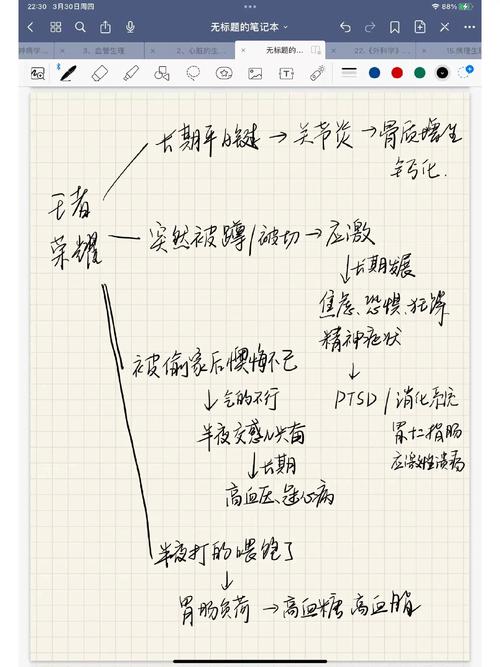 22:30 3月30日周四
88%
无标题的笔记本
3、血管生理
2、心脏的生...
无标题的...
22.《外科学》...
15.病理生
王者
荣耀
长期平a键→关节炎→骨质增生
钙化.
突然被蹲/被切→应激
↓长期发展
焦虑、恐惧、狂躁
精神症状
↓
PTSD/消化系统
胃十二指肠
应激性溃疡
被偷家后懊悔不已
↓气的不行
半夜交感N兴奋
↓长期
高血压、冠心病
半夜打的
饿了
↓
胃肠负荷→高血糖 高血脂